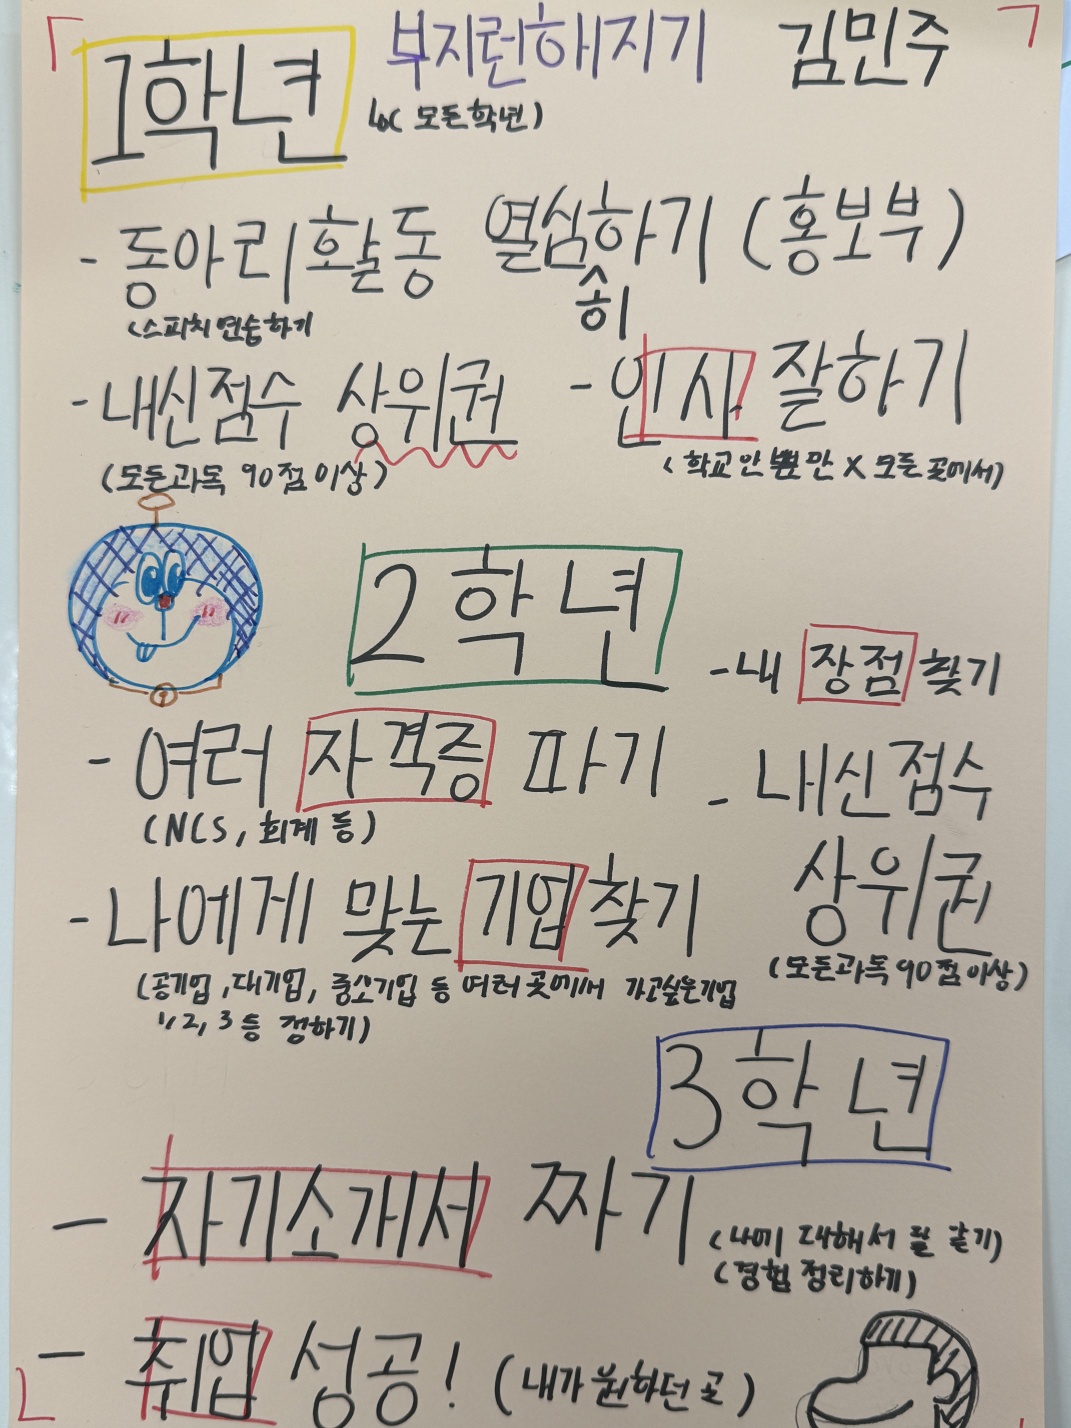 1학년 부지런해지기 김민주
(모든학년)
- 동아리활동 열심하기 (홍보부)
히
(스피치연습하기
- 내신점수 상위권 - 인사 잘하기
(모든과목 90점이상) (학교안 뿐만 X 모든 곳에서)
2학년
- 내 장점 찾기
- 여러 자격증 따기 - 내신점수
(NCS, 회계 등) 상위권
- 나에게 맞는 기업 찾기 (모든과목 90점 이상)
(공기업, 대기업, 중소기업 등 여러 곳에서 가고싶은기업
1, 2, 3 등 정하기)
3학년
- 자기소개서 짜기 (나에 대해서 잘 알기)
(경험 정리하기)
- 취업 성공! (내가 원하던 곳)